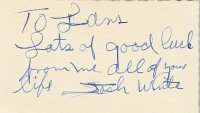 To Lans
Lots of good luck
from me all of your
life Josh White